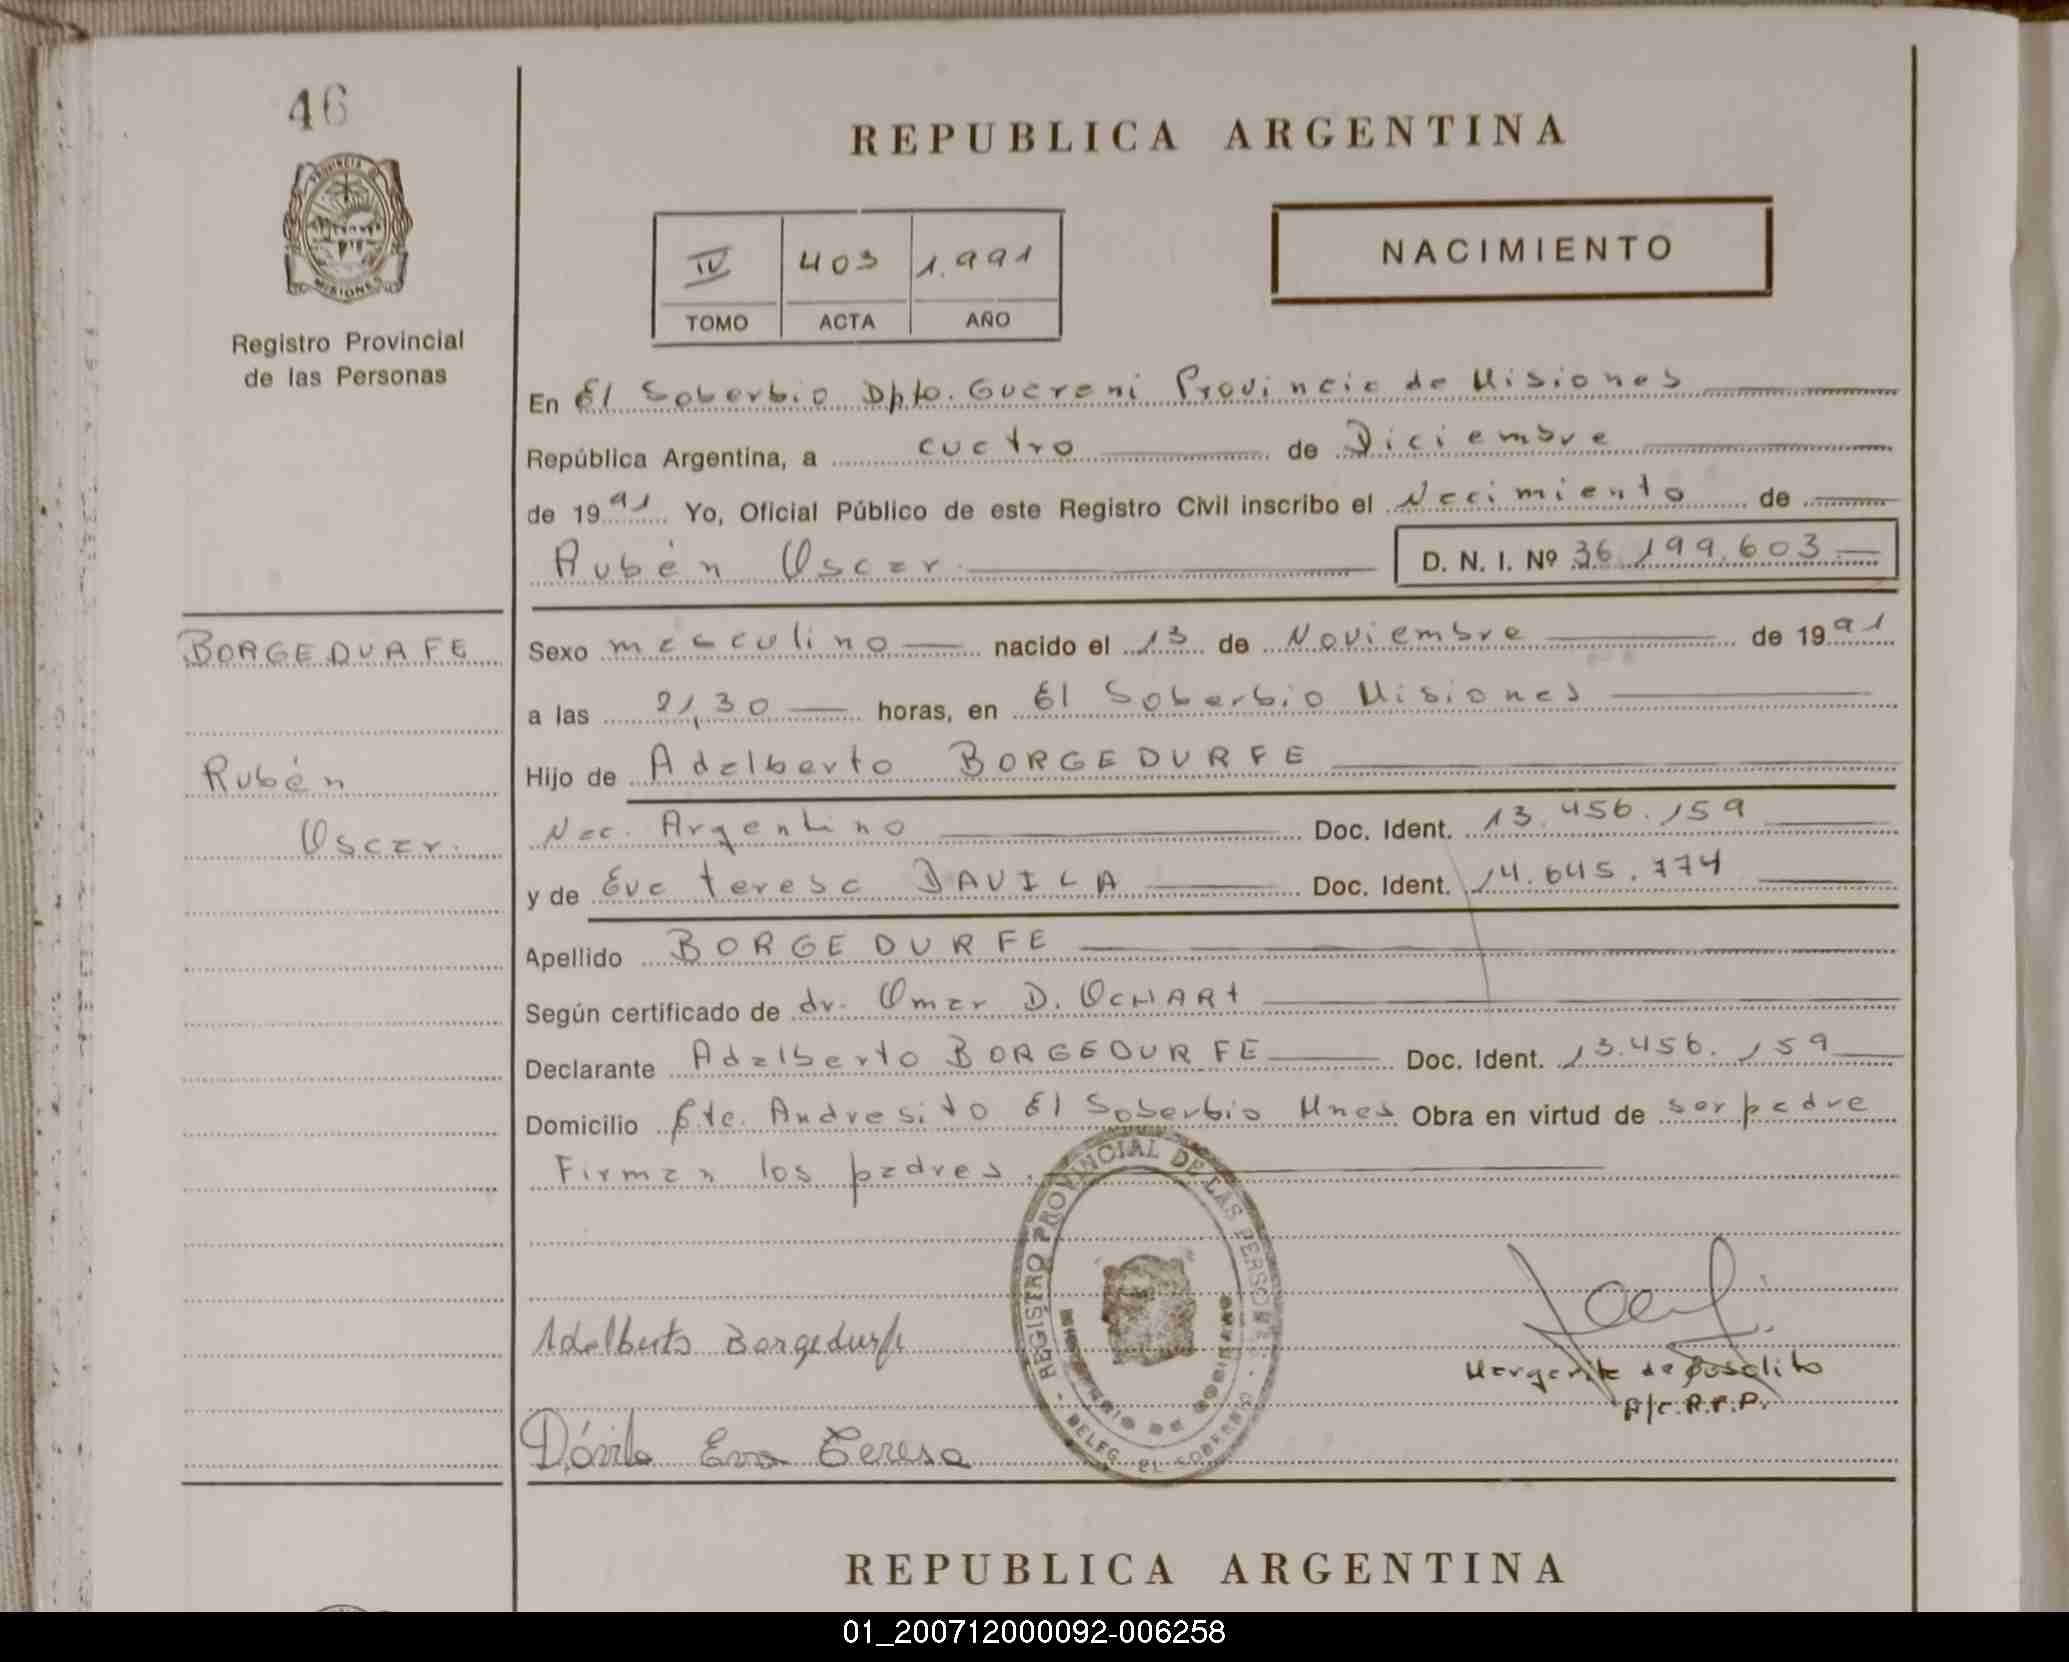 46
PROVINCIA D
MISIONES
Registro Provincial
de las Personas
REPUBLICA ARGENTINA
IV 403 1.991
TOMO ACTA AÑO
NACIMIENTO
En El Soberbio Dpto. Guarani Provincia de Misiones
República Argentina, a cuatro de Diciembre
de 1991 Yo, Oficial Público de este Registro Civil inscribo el Nacimiento de
Rubén Oscar D. N. I. Nº 36.199.603
BORGEDURFE
Rubén
Oscar.
Sexo masculino nacido el 13 de Noviembre de 1991
a las 21,30 horas, en El Soberbio Misiones
Hijo de Adalberto BORGEDURFE
Nac. Argentino Doc. Ident. 13.456.159
y de Eva teresa DAVILA Doc. Ident. 14.645.774
Apellido BORGEDURFE
Según certificado de dr. Omar D. OCHARt
Declarante Adalberto BORGEDURFE Doc. Ident. 13.456.159
Domicilio Pte. Andresito El Soberbio Mnes Obra en virtud de ser padre
Firman los padres.
REGISTRO PROVINCIAL DE LAS PERSONAS
DELEG. EL SOBERBIO
MINISTERIO DE GOBIERNO
Adalberto Borgedurfe
Margarita de
A/c. R.P.P.
Dávila Eva Teresa
REPUBLICA ARGENTINA
01_200712000092-006258